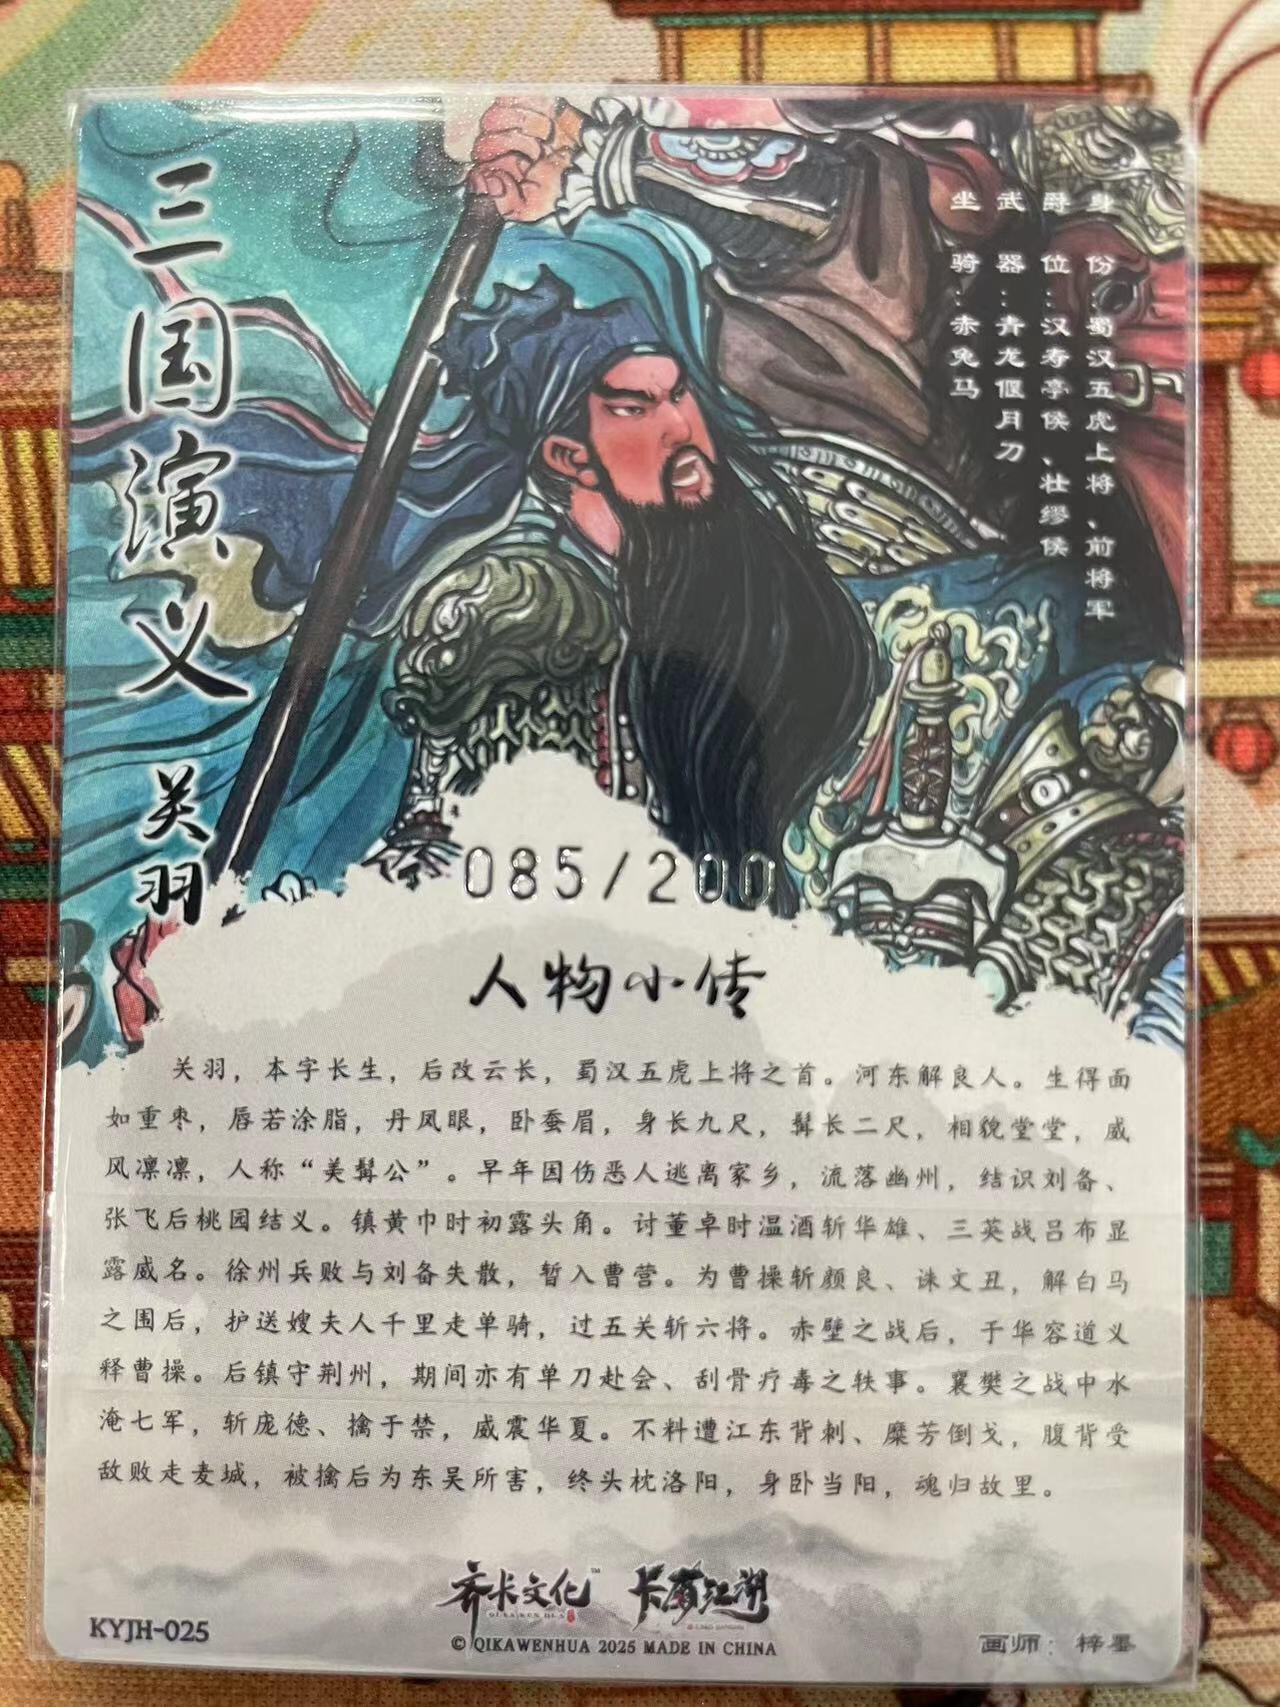 三国演义
关羽
身份：蜀汉五虎上将、前将军
爵位：汉寿亭侯、壮缪侯
武器：青龙偃月刀
坐骑：赤兔马
085/200
人物小传
关羽，本字长生，后改云长，蜀汉五虎上将之首。河东解良人。生得面
如重枣，唇若涂脂，丹凤眼，卧蚕眉，身长九尺，髯长二尺，相貌堂堂，威
风凛凛，人称“美髯公”。早年因伤恶人逃离家乡，流落幽州，结识刘备、
张飞后桃园结义。镇黄巾时初露头角。讨董卓时温酒斩华雄、三英战吕布显
露威名。徐州兵败与刘备失散，暂入曹营。为曹操斩颜良、诛文丑，解白马
之围后，护送嫂夫人千里走单骑，过五关斩六将。赤壁之战后，于华容道义
释曹操。后镇守荆州，期间亦有单刀赴会、刮骨疗毒之轶事。襄樊之战中水
淹七军，斩庞德、擒于禁，威震华夏。不料遭江东背刺、糜芳倒戈，腹背受
敌败走麦城，被擒后为东吴所害，终头枕洛阳，身卧当阳，魂归故里。
齐卡文化™ 卡有江湖
QI KA WEN HUA
KYJH-025
© QIKAWENHUA 2025 MADE IN CHINA
画师：梓墨